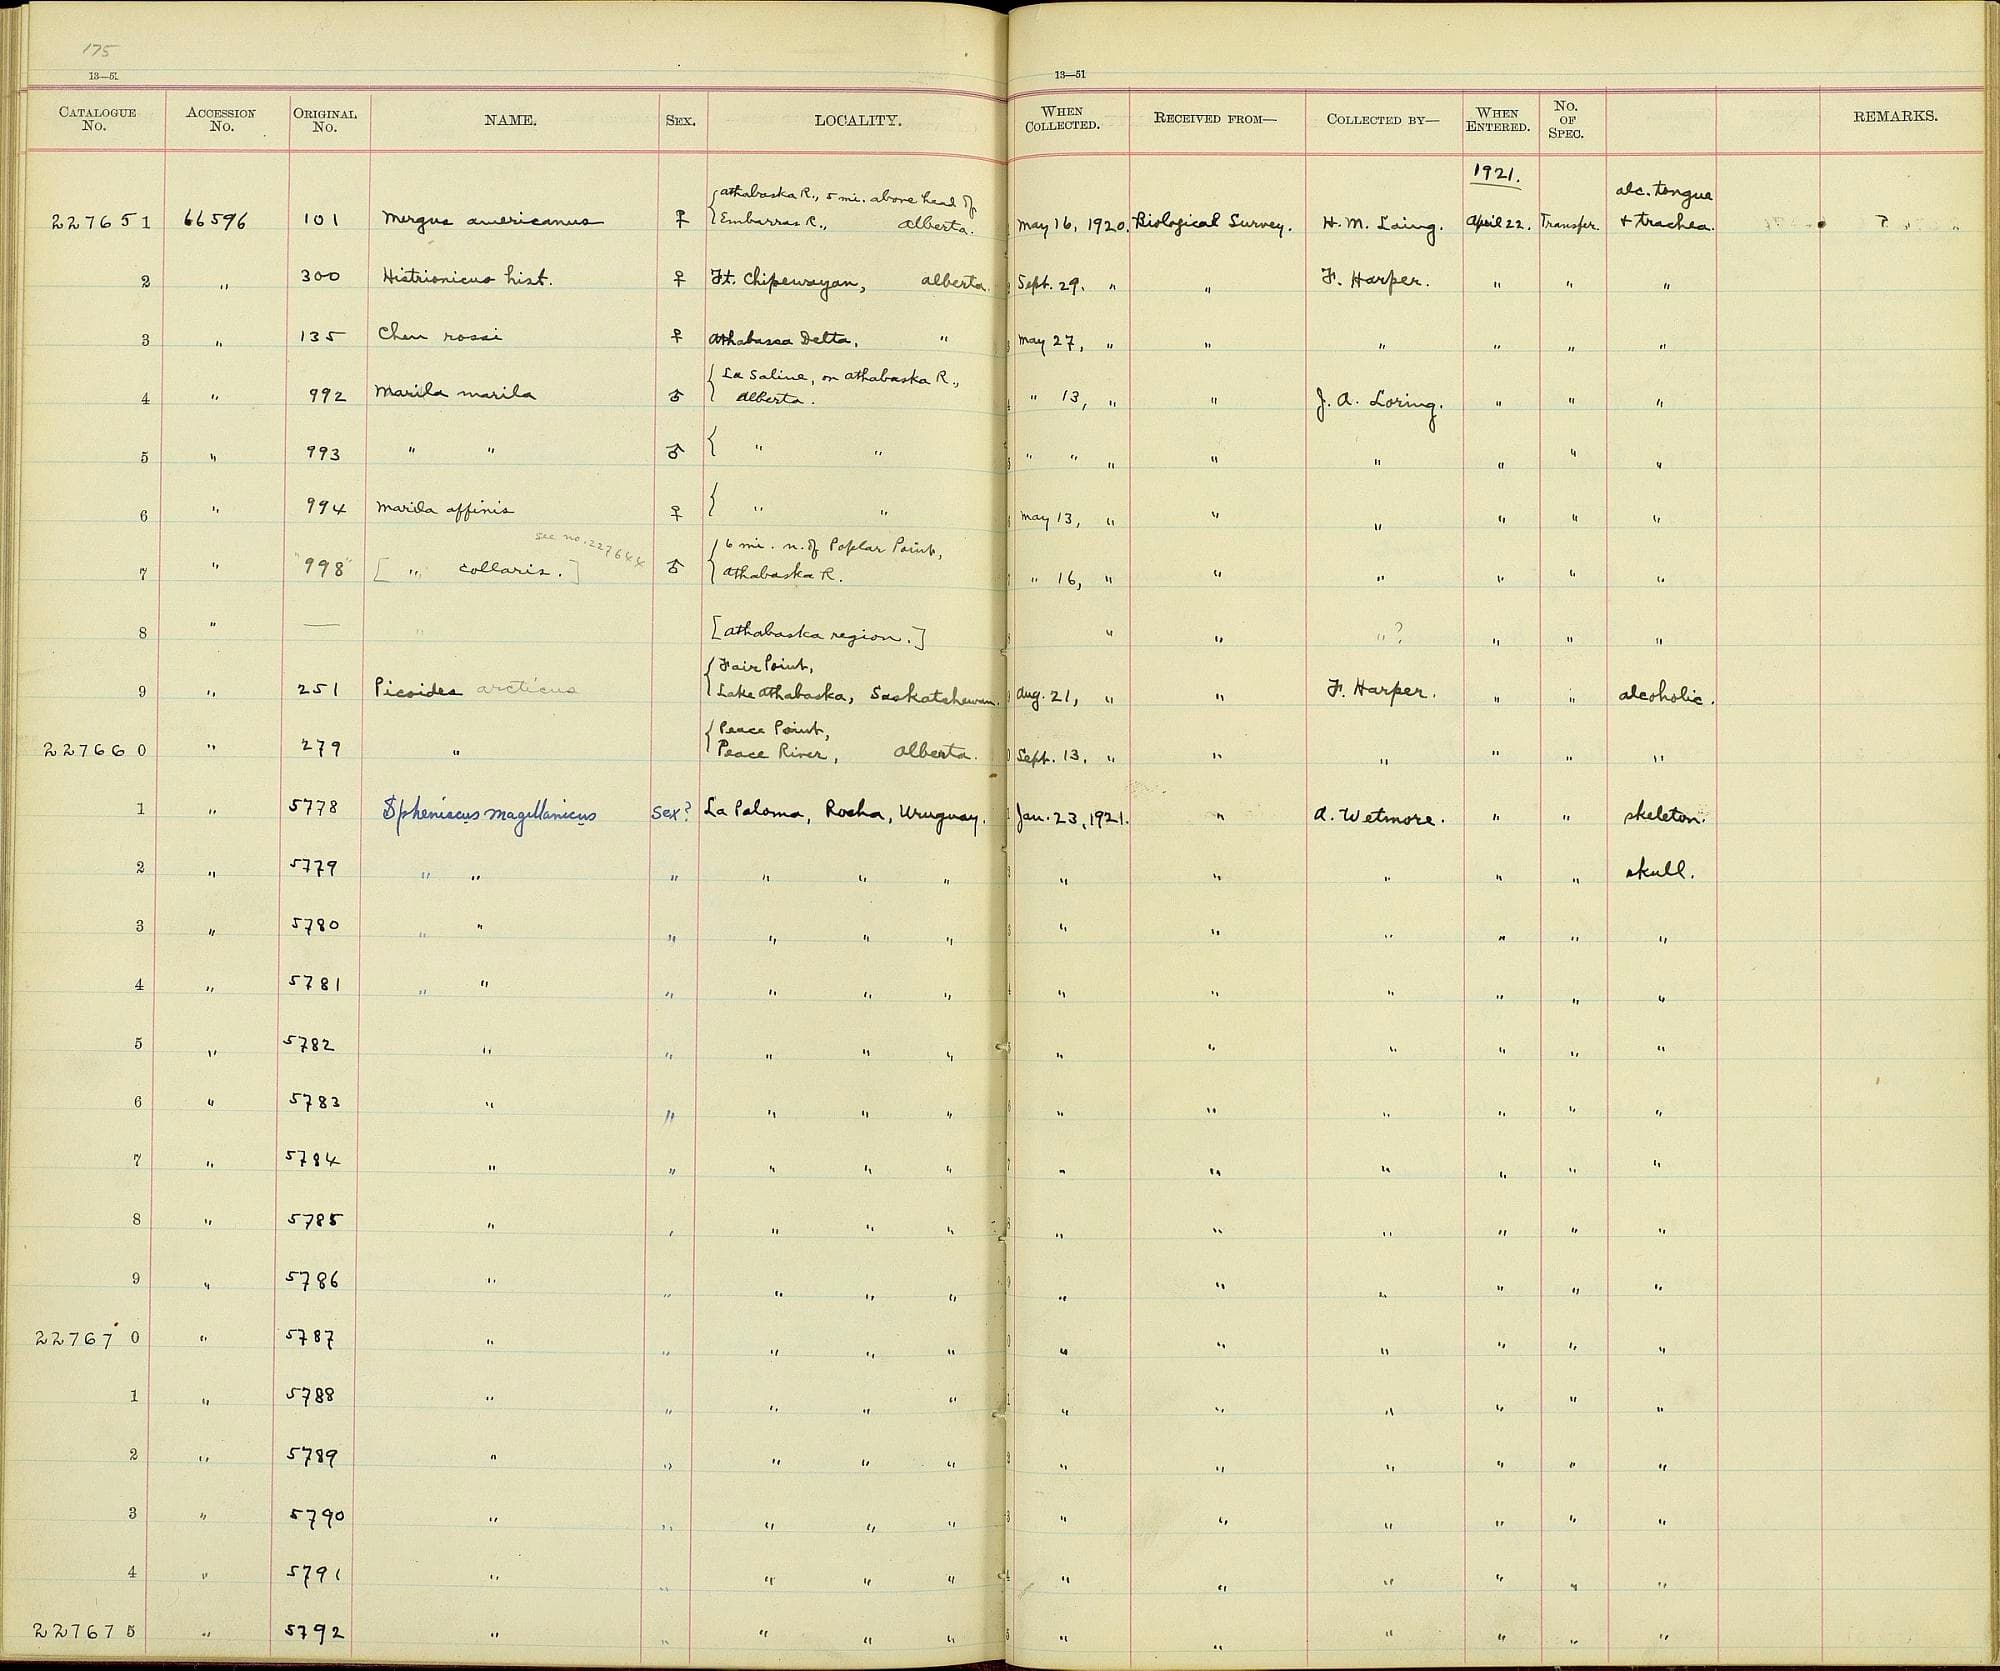 175
13—51 13—51
CATALOGUE No. ACCESSION No. ORIGINAL No. NAME. SEX. LOCALITY. WHEN COLLECTED. RECEIVED FROM— COLLECTED BY— WHEN ENTERED. No. OF SPEC. REMARKS.
1921.
{ Athabaska R., 5 mi. above head of alc. tongue
227651 66596 101 Mergus americanus ♀ Embarras R., Alberta. May 16, 1920. Biological Survey. H. M. Laing. April 22. Transfer. & trachea. ?
2 " 300 Histrionicus hist. ♀ Ft. Chipewayan, Alberta. Sept. 29. " " F. Harper. " " "
3 " 135 Chen rossi ♀ Athabasca Delta, " May 27, " " " " " "
{ La Saline, on Athabaska R.,
4 " 992 Marila marila ♂ Alberta. " 13, " " J. A. Loring. " " "
5 " 993 " " ♂ { " " " " " " " " " "
6 " 994 Marila affinis ♀ { " " May 13, " " " " " "
see no. 227644 { 6 mi. n. of Poplar Point,
7 " "998" [ " collaris. ] ♂ Athabaska R. " 16, " " " " " "
8 " — " [Athabaska region.] " " " ? " " "
{ Fair Point,
9 " 251 Picoides arcticus Lake Athabaska, Saskatchewan. Aug. 21, " " F. Harper. " " alcoholic.
{ Peace Point,
227660 " 279 " Peace River, Alberta. Sept. 13, " " " " " "
1 " 5778 Spheniscus magellanicus Sex? La Paloma, Rocha, Uruguay. Jan. 23, 1921. " A. Wetmore. " " skeleton.
2 " 5779 " " " " " " " " " " " skull.
3 " 5780 " " " " " " " " " " " "
4 " 5781 " " " " " " " " " " " "
5 " 5782 " " " " " " " " " " "
6 " 5783 " " " " " " " " " " "
7 " 5784 " " " " " " " " " " "
8 " 5785 " " " " " " " " " " "
9 " 5786 " " " " " " " " " " "
227670 " 5787 " " " " " " " " " " "
1 " 5788 " " " " " " " " " " "
2 " 5789 " " " " " " " " " " "
3 " 5790 " " " " " " " " " " "
4 " 5791 " " " " " " " " " " "
227675 " 5792 " " " " " " " " " " "